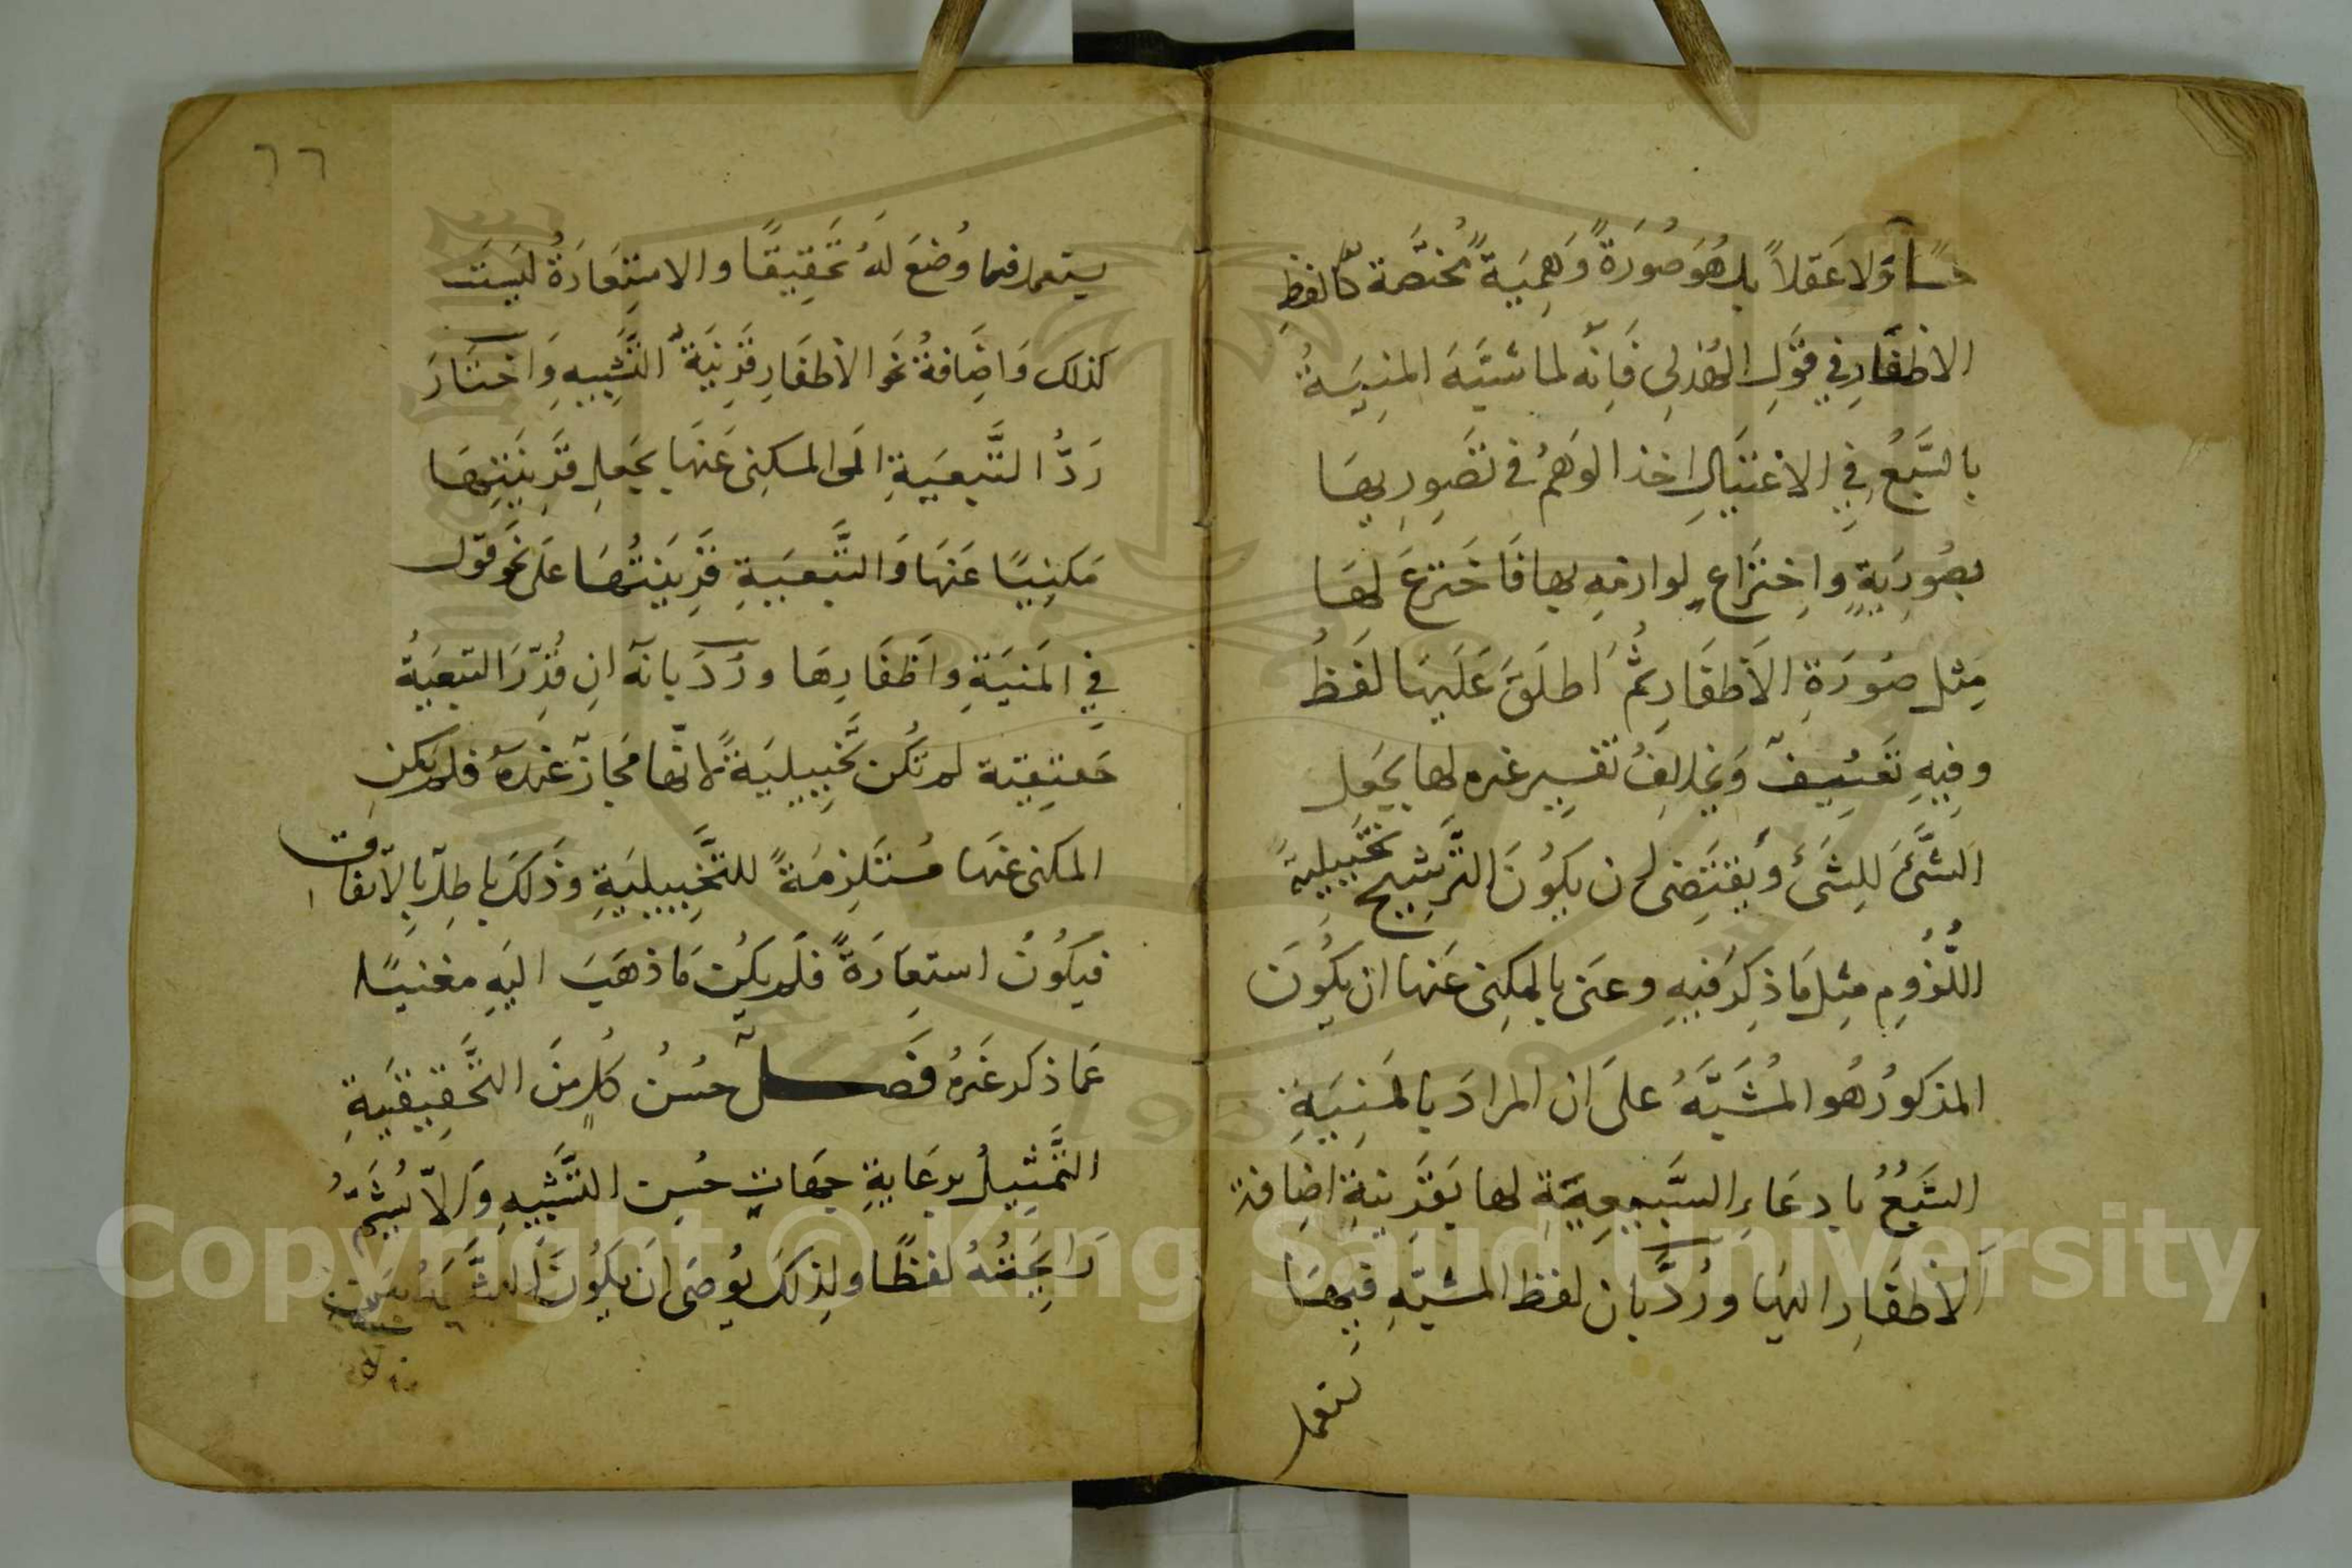 حسًّا وَلا عَقلاً بل هُوَ صُورَةً وَهمِيَةً مُختصَّة كَالفظِ
الاظفَارِ في قَولِ الهُذلى فَاِنّه لما شبَّهَ المنِيَّةُ
بالسَّبُعِ فِي الاغتيَالِ اخذ الوَهمُ في تصَوِيرِهَا
بصُورَتِهِ وَاِختِرَاعِ لوازمِهِ لها فَاختَرعَ لهَا
مِثل صُورَةِ الاَظفَارِ ثُمَّ اَطلَقَ عَلَيهَا لَفظُ
وفِيهِ تَعَسُّفٌ وَيخالِفُ تَفسِير غيره لها بجَعلِ
الشَّئِ لِلشَّئِ وَيقتَضى ان يَكُونَ التَّرشِيح تخَيِيلِيَّةً
اللُّزُومِ مثِل مَا ذكِرَ فيهِ وعنَى بالمكِنى عَنهَا ان يكُونَ
المذكوُرُ هُو المُشَبَّهُ علىَ ان المرادَ بالمنِيَّةِ
السَّبُعُ بادِعَاءِ السَّبُعِيَّةِ لها بقَرِينَةِ اضَافة
اَلاظفَارِ اليهَا ورُدَّ بان لفظ المشبَّهِ فيهَا
يستعمل
٦٦
يستعمل فيما وُضعَ لَهُ تَحقِيقًا والاستِعَارَةُ ليسَت
كذلك وَاضَافةُ نحَو الاظفَارِ قَرِينَةُ التَّشبِيهِ وَاختَارَ
رَدَّ التَّبعِيَةِ الَى المكنِى عَنهَا بجَعلِ قَرِينَتِهَا
مَكنِيًا عَنهَا وَالتَّبعِيَةِ قَرِينَتُهَا عَلى نحَو قَوله
فِي المَنيَةِ وَاَظفَارِهَا ورُدَّ بانه انِ قُدِّرَ التبعِيَةُ
حَقيقِيَة لم تَكُن تَخيِيلِيَةً لانّها مَجاز عندَهُ فلم تَكن
المكنى عَنهَا مُستَلزِمَةً للتَّخيِيلِيَةِ وَذَلكَ باطِل بالاتفَاق
فَيَكُونُ استعَارَةً فلَم يَكُن مَا ذهَبَ اليَهِ مغنيًا
عَما ذكَر غَيرهُ فَصــلٌ حسُن كُلٍ مِنَ التَّحقِيقيَةِ
التَّمثِيلُ برِعَايَةِ جهَاتِ حسُنِ التَّشبِيهِ وَاَلاّ يُشَمَّ
رَايِحَتُهُ لفظًا ولذِلكَ يوُصَى اَن يكُونَ الشَّبَهُ بَين